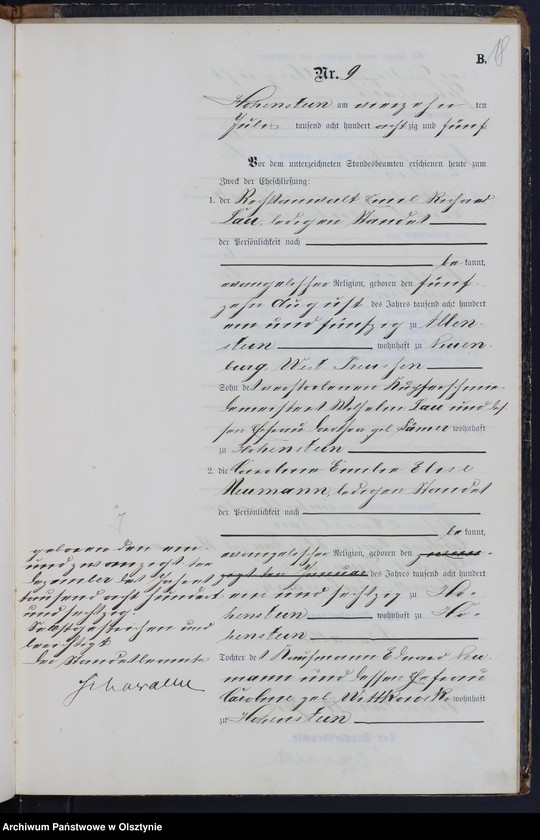 B. 18
Nr. 9
Hohenstein am vierzehn ten
Juli tausend acht hundert achtzig und fünf
Vor dem unterzeichneten Standesbeamten erschienen heute zum
Zweck der Eheschließung:
1. der Rechtsanwalt Emil Richard
Lau, ledigen Standes
der Persönlichkeit nach
be kannt,
evangelischer Religion, geboren den fünf-
zehn August des Jahres tausend acht hundert
ein und fünfzig zu Allen-
stein wohnhaft zu Neuen-
burg West Preussen
Sohn des verstorbenen Kupferschmie-
demeisters Wilhelm Lau und des-
sen Ehefrau Dorothea geb. wohnhaft
zu Hohenstein
2. die Caroline Emilie Elise
Neumann, ledigen Standes
der Persönlichkeit nach
be kannt,
evangelischer Religion, geboren den zwan-
zigsten Januar des Jahres tausend acht hundert
ein und sechzig zu Ho-
henstein wohnhaft zu Ho-
henstein
Tochter des Kaufmann Eduard Neu-
mann und dessen Ehefrau
Caroline geb. Wittkowski wohnhaft
zu Hohenstein
geboren den ein
und zwanzigsten
Dezember des Jahres
tausend acht hundert
und sechzig.
und
berichtigt
Der Standesbeamte
Archiwum Państwowe w Olsztynie